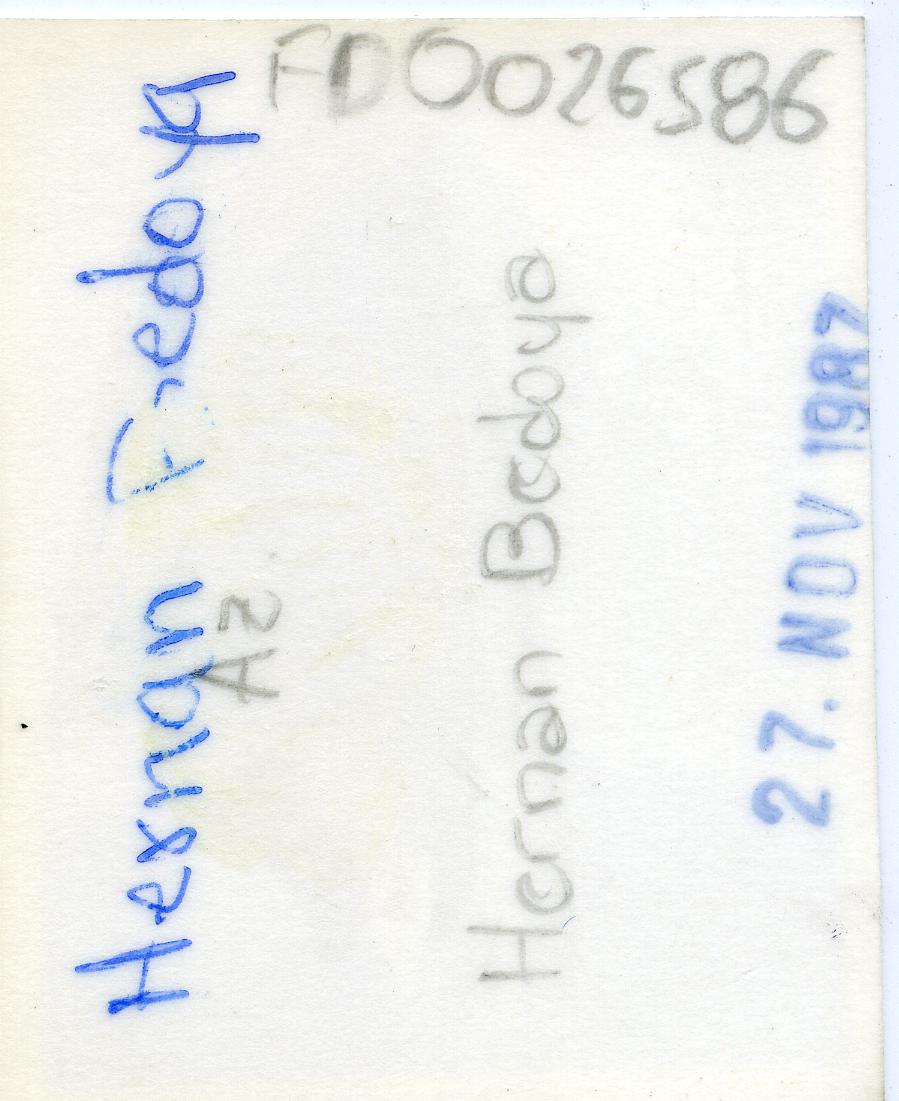 FD0026586
Hernan Bedoya
Az
Hernan Bedoya
27. NOV 1987